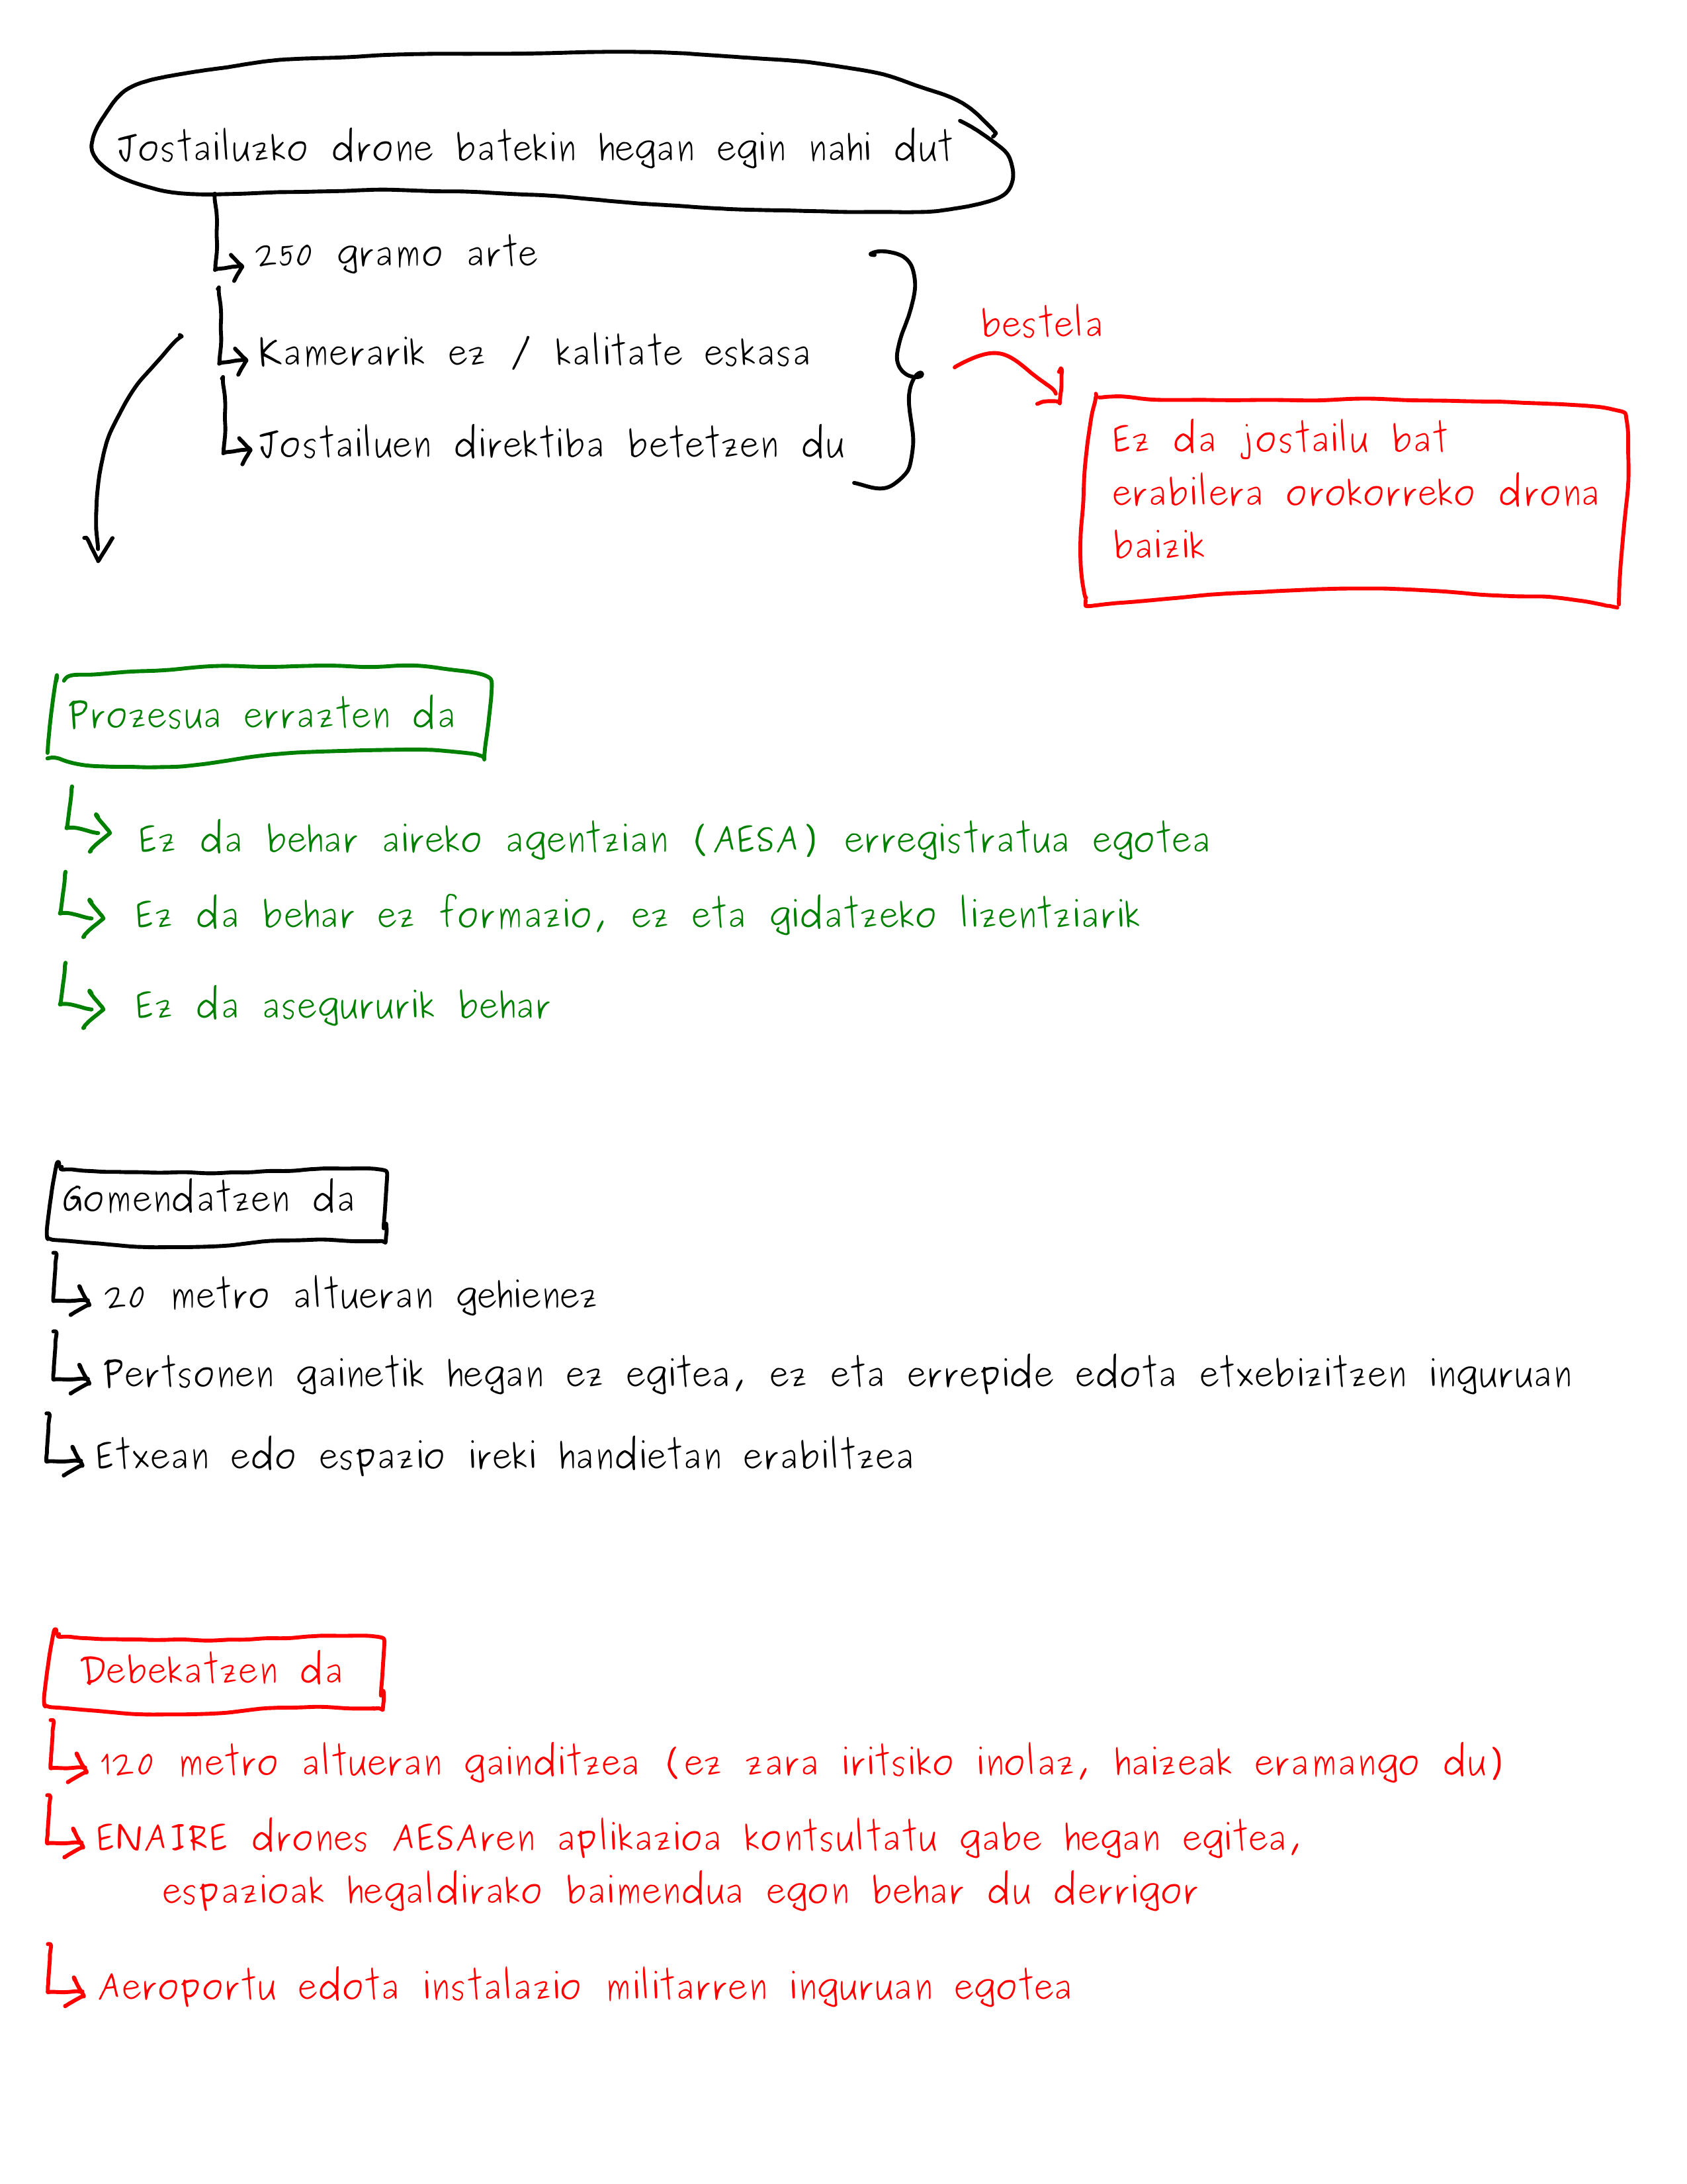 Jostailuzko drone batekin hegan egin nahi dut
250 gramo arte
Kamerarik ez / kalitate eskasa
Jostailuen direktiba betetzen du
bestela
Ez da jostailu bat
erabilera orokorreko drona
baizik
Prozesua errazten da
Ez da behar aireko agentzian (AESA) erregistratua egotea
Ez da behar ez formazio, ez eta gidatzeko lizentziarik
Ez da asegururik behar
Gomendatzen da
20 metro altueran gehienez
Pertsonen gainetik hegan ez egitea, ez eta errepide edota etxebizitzen inguruan
Etxean edo espazio ireki handietan erabiltzea
Debekatzen da
120 metro altueran gainditzea (ez zara iritsiko inolaz, haizeak eramango du)
ENAIRE drones AESAren aplikazioa kontsultatu gabe hegan egitea,
espazioak hegaldirako baimendua egon behar du derrigor
Aeroportu edota instalazio militarren inguruan egotea